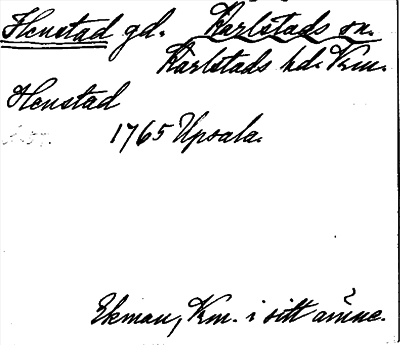 Henstad gd. Karlstads sn.
Karlstads hd. Vrm.
Henstad
1765 Upsala.
Ekman, Vrm. i sitt ämne.